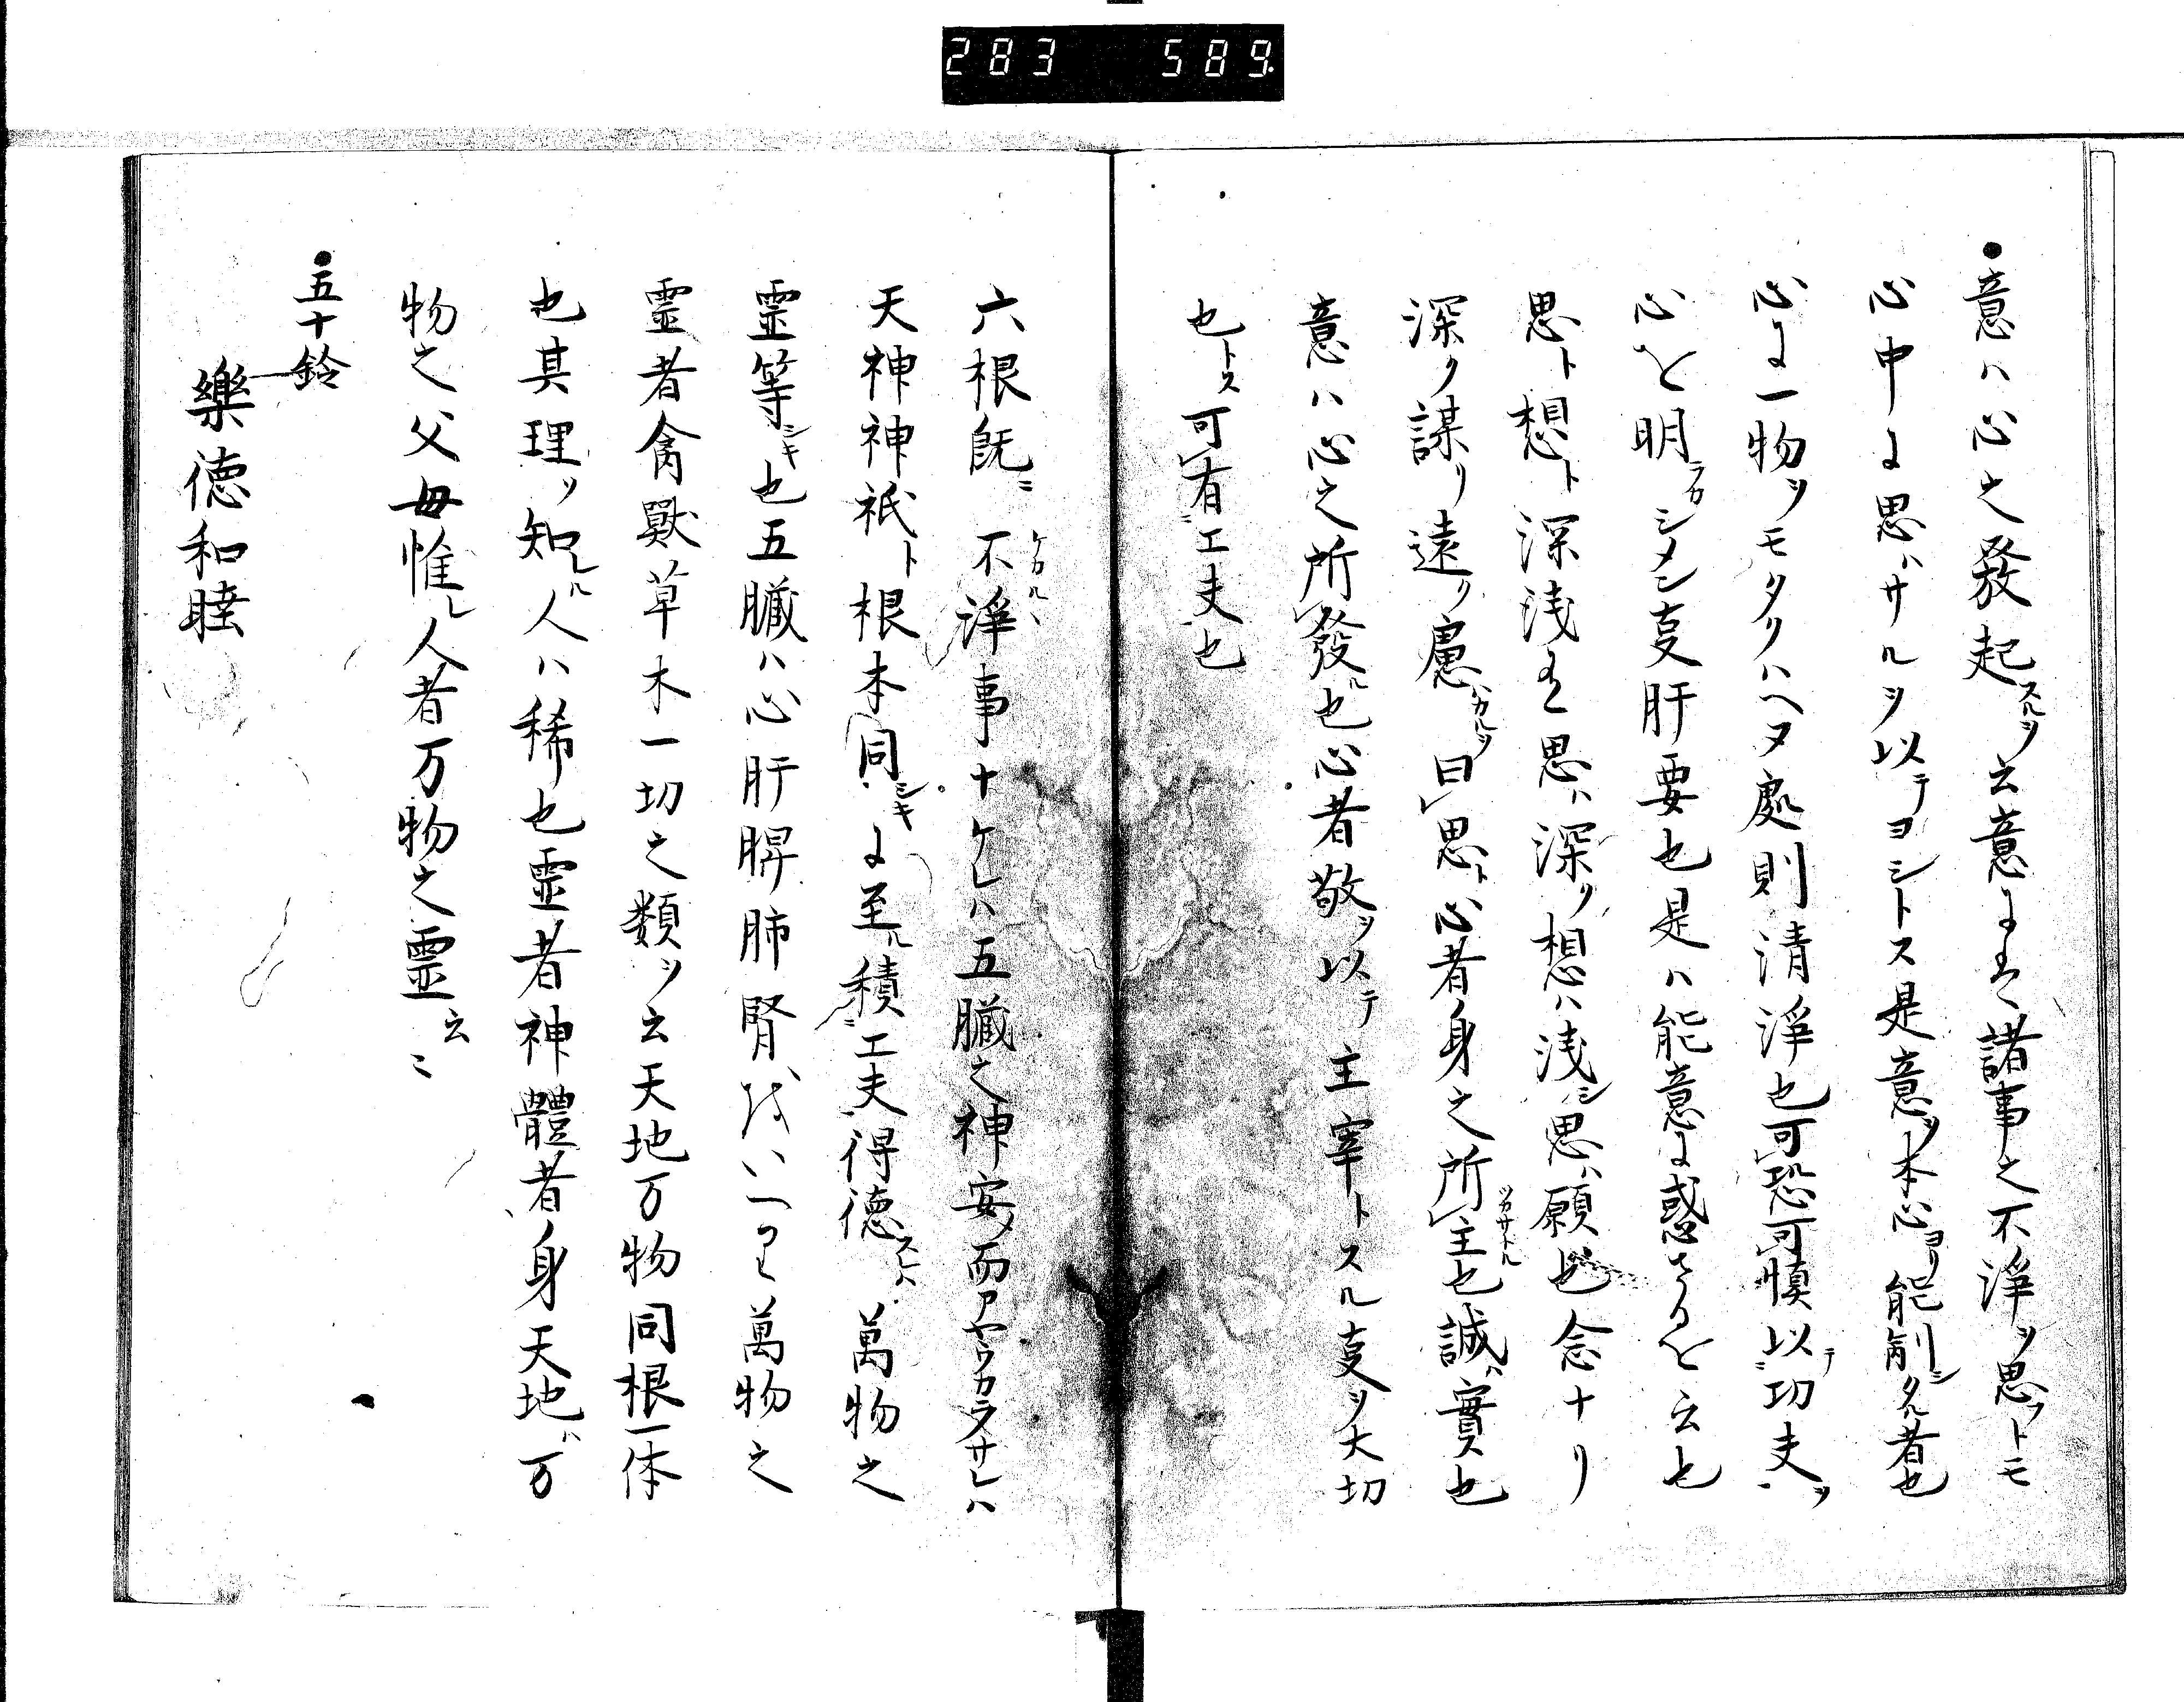 283 589
●意ハ心之發起スルヲ云意に者諸事之不淨ヲ思フトモ
心中に思ハサルヲ以テヨシトス是意ヲ本心ヨリ能制シタル者也
心に一物ヲモタクハヘヌ處則清淨也可恐可慎以テ功夫ヲ
心を明ラカシメン事肝要也是ハ能意に惑さるを云也
思ト想ト深浅有思ハ深ク想ハ浅シ思ハ願也念ナリ
深ク謀リ遠ク慮ハカルヲ曰思ト心者身之所主ツカサトル也誠ハ實也
意ハ心之所發ル也心者敬ヲ以テ主宰トスル事ヲ大切
也トス可有工夫也
六根既ニ不淨ケカルヽ事ナケレハ五臓之神安而ヤウカラサレハ
天神神祇ト根本同シキに至ル積ニ工夫得德スレハ萬物之
霊等シキ也五臓ハ心肝脾肺腎をいへり萬物之
霊者禽獸草木一切之類ヲ云天地万物同根一体
也其理ヲ知レル人ハ稀也霊者神體者身天地ハ万
物之父母惟レ人者万物之霊云ニ
●五十鈴
樂德和睦